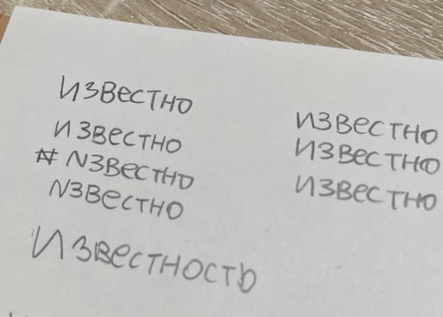 известно
известно
# известно
известно
известность
известно
известно
известно